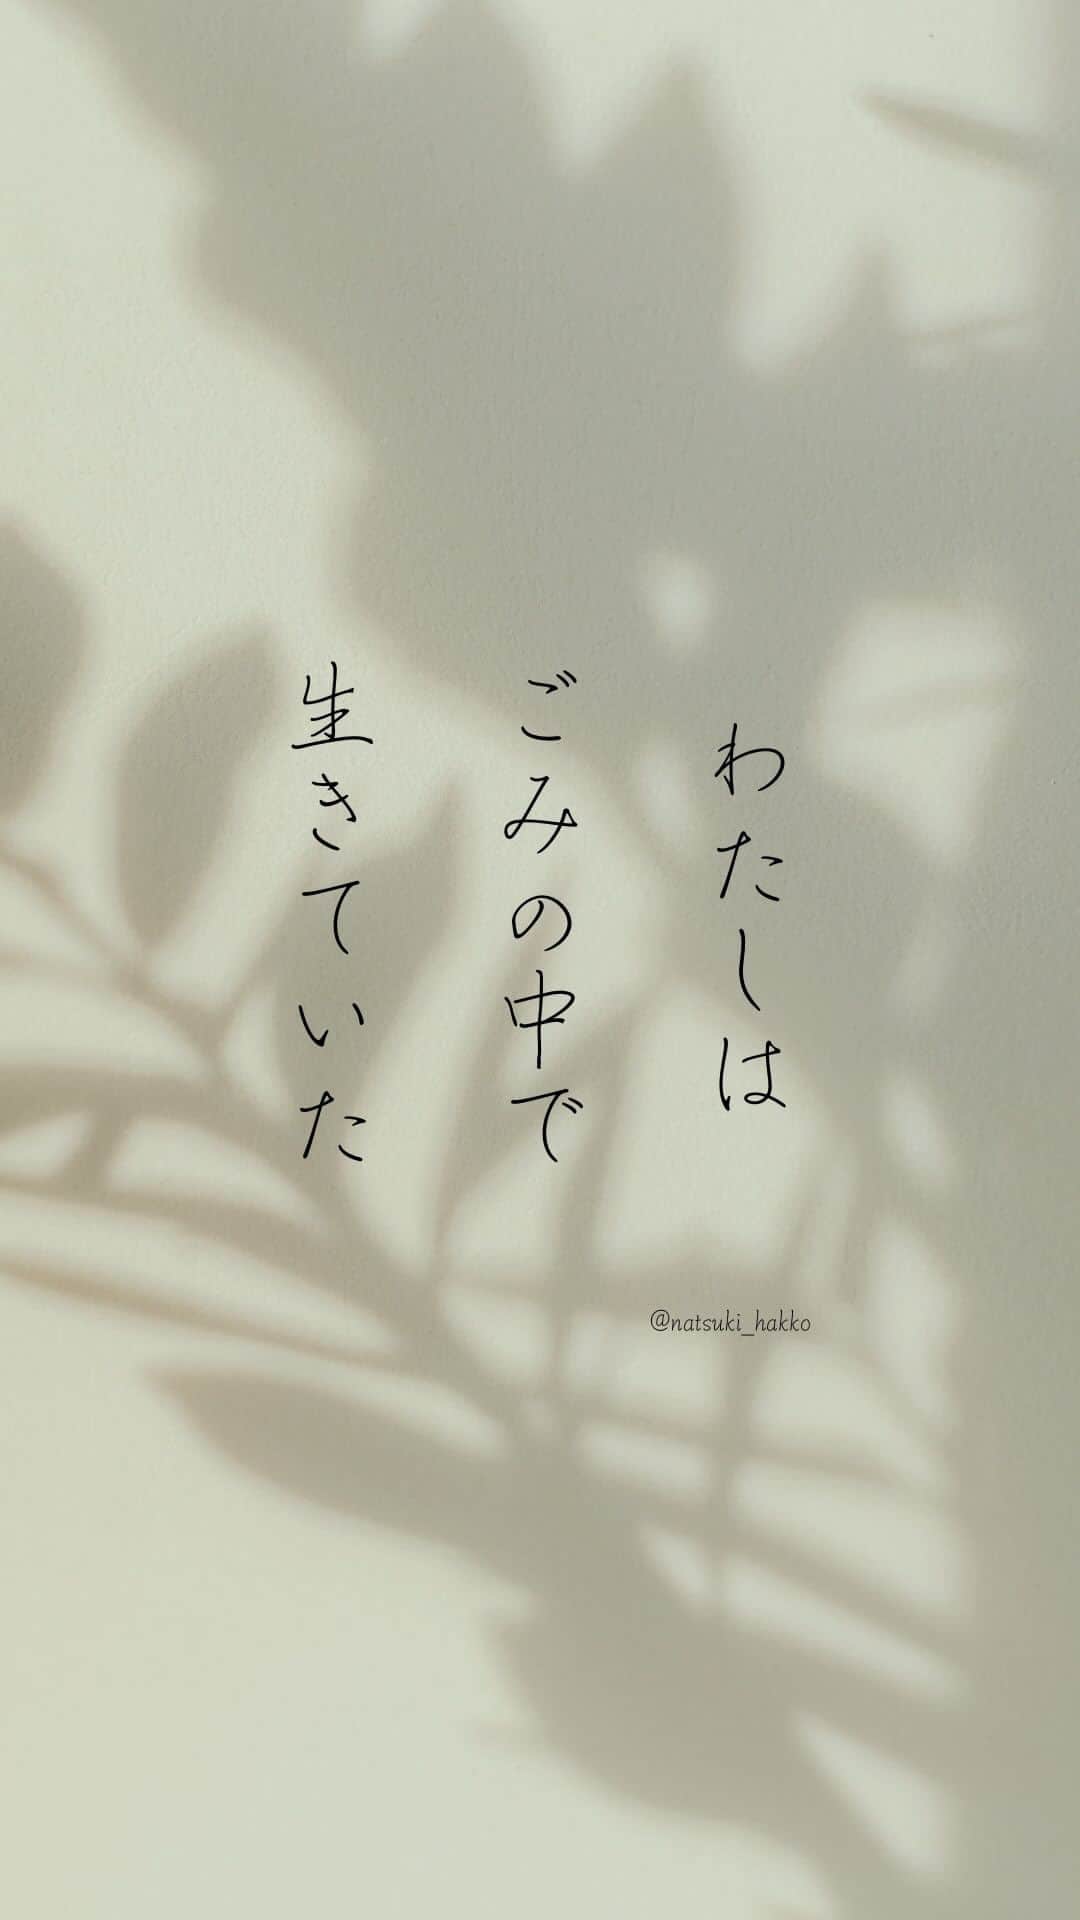 わたしは
ごみの中で
生きていた
@natsuki_hakko